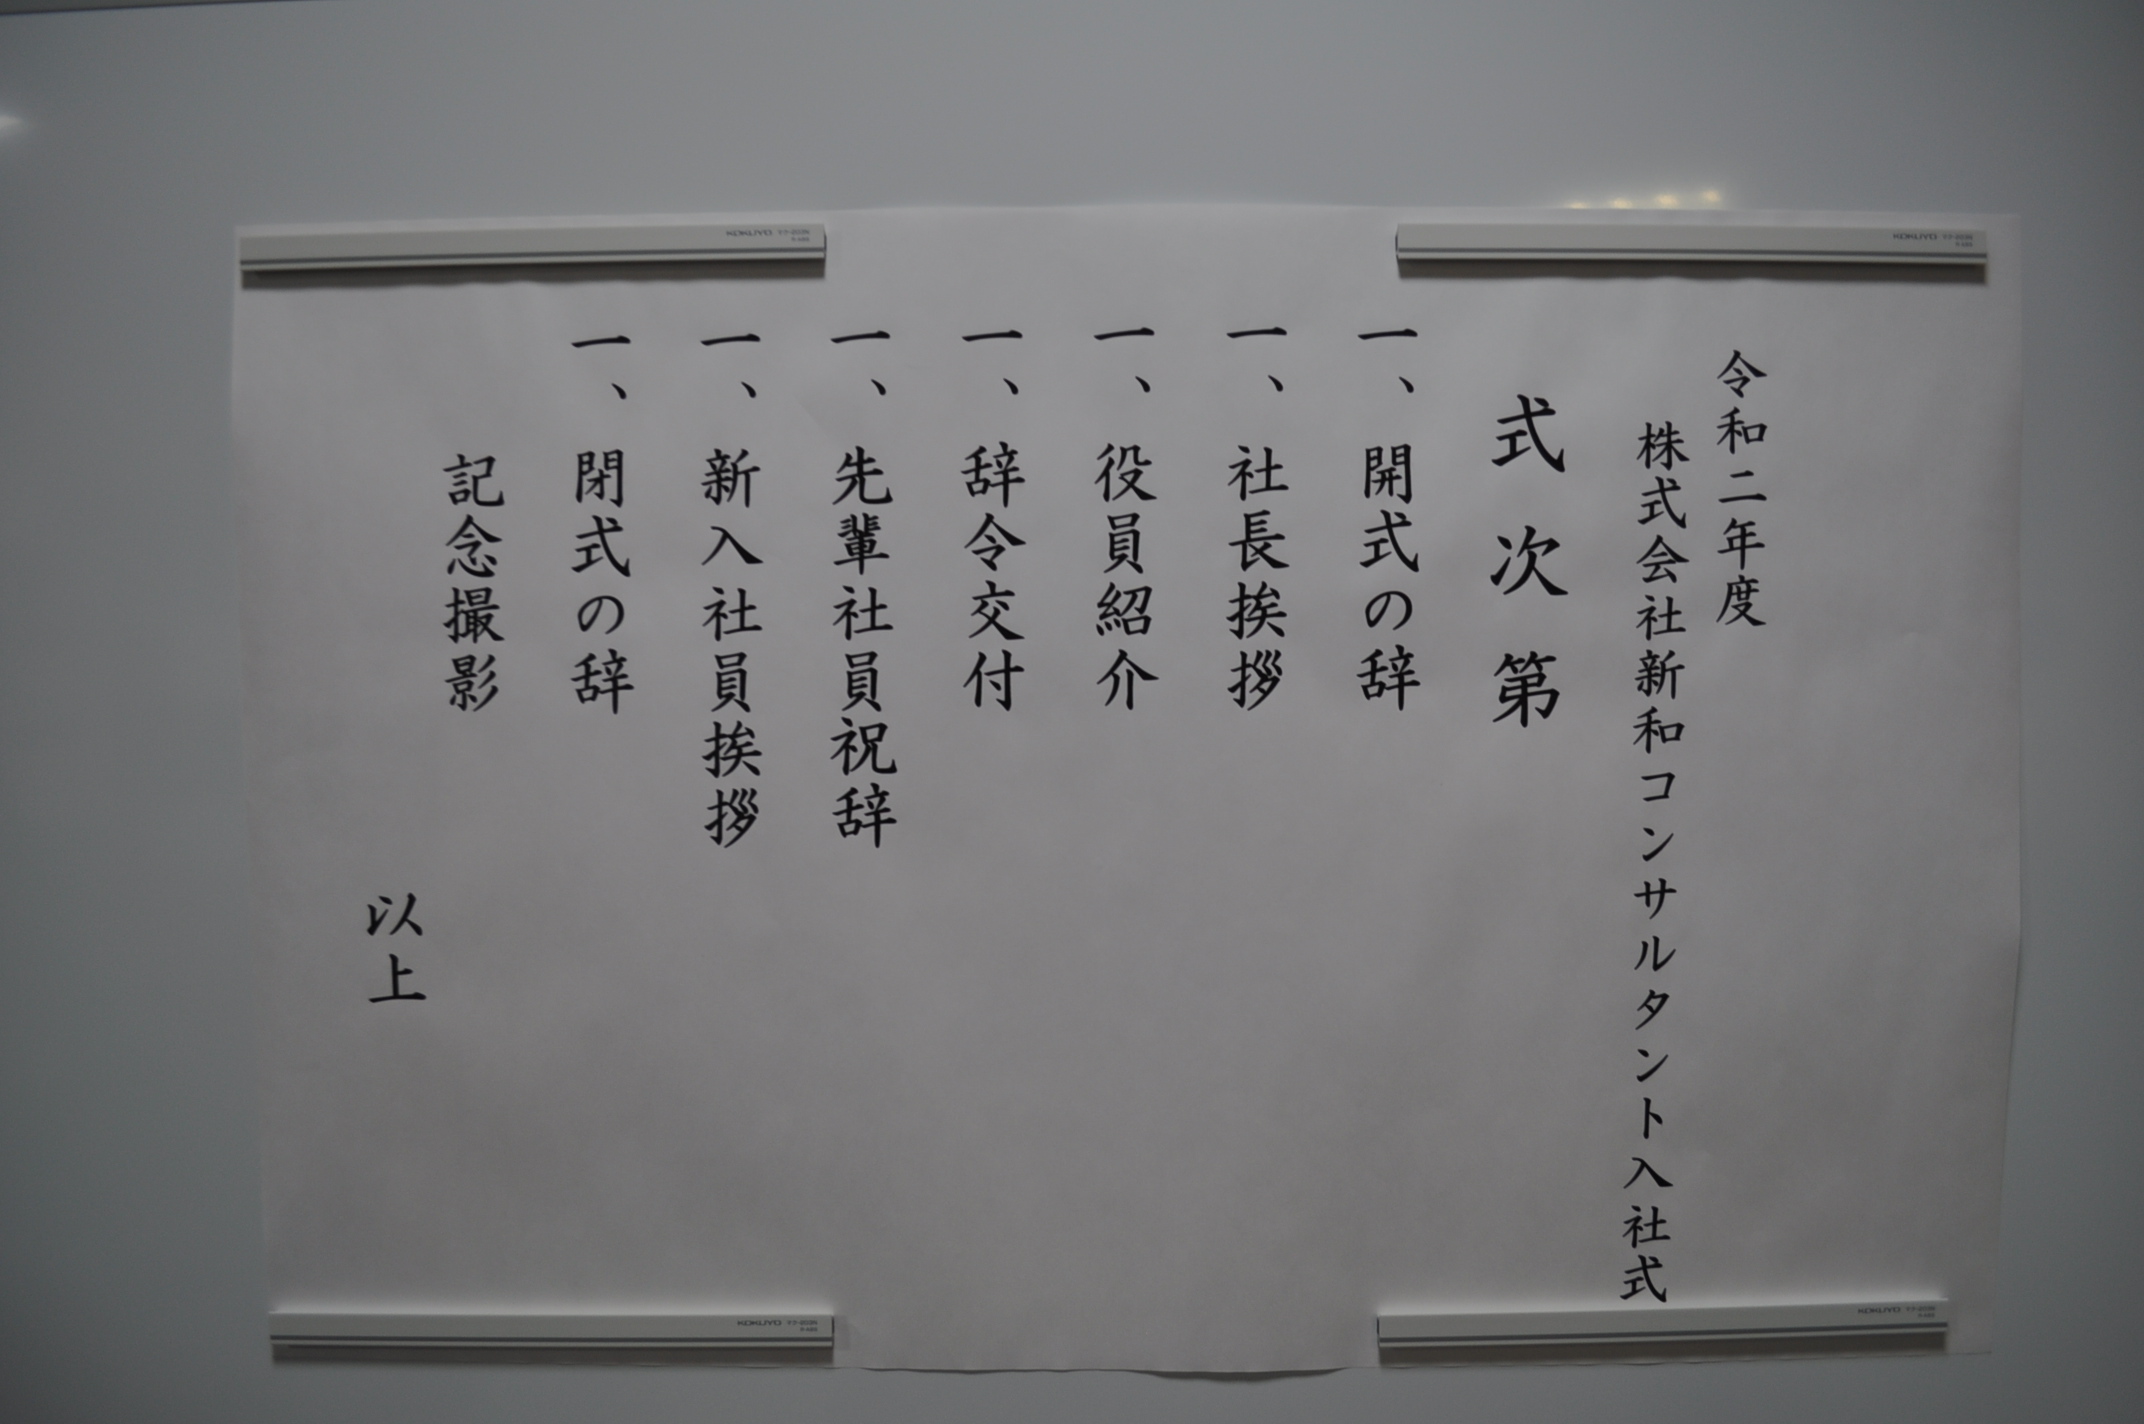 令和二年度
株式会社新和コンサルタント入社式
式次第
一、開式の辞
一、社長挨拶
一、役員紹介
一、辞令交付
一、先輩社員祝辞
一、新入社員挨拶
一、閉式の辞
記念撮影
以上
KOKUYO
KOKUYO
KOKUYO
KOKUYO